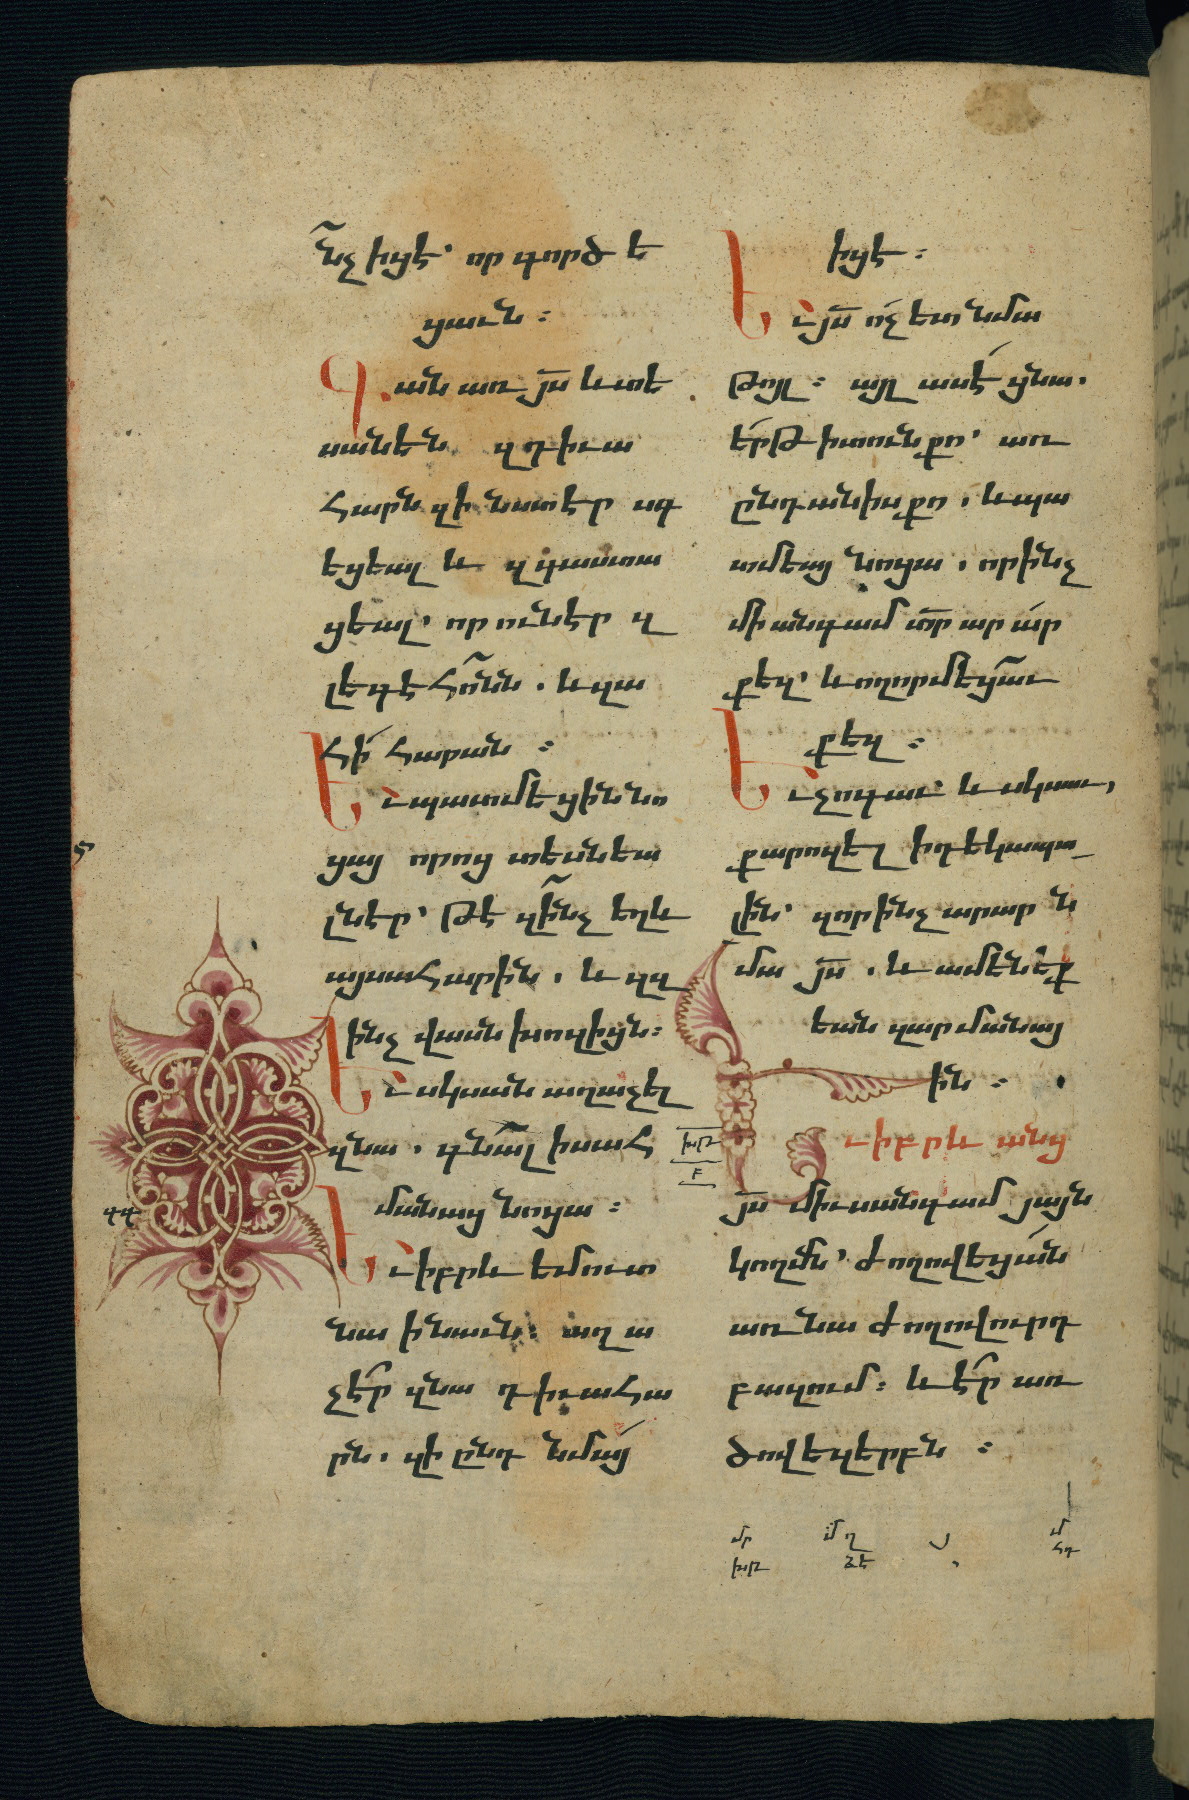 ՜նչ իցէ՝ որ գործե
ցաւն ։
Գան առ յ՟ս և տե
սանեն զդիւա
հարն զի նստէր զգ
եցեալ և զգաստա
ցեալ՝ որ ունէր զ
լեգէ՜հոնն . և զա
հի հարան ։
Եւ պատմեցին նո
ցայ որոց տեսեա
լն էր՝ թէ զի՜նչ եղև
այսահարին . և զզ
ինչ վասն խոզիցն։
Եւ սկսան աղաչել
զնա . գն՜ալ ի սահ
մանաց նոցա ։
Եւ իբրև եմուտ
նա ի նաւն։ աղա
չէր զնա դիւահա
րն . զի ընդ նմայ
իցէ ։
Եւ յ՟ս ոչ ետ նմա
թոյլ ։ այլ ասէ ցնա .
երթ ի տուն քո՝ առ
ընդանիս քո . և պա
տմեայ նոցա . որինչ
միանգամ տ՟ր արար
քեզ՝ և ողորմեց՜աւ
քեզ ։
Եւ չոգաւ և սկսաւ,
քարոզել ի դեկապօ_
լին՝ զոր ինչ արար ն
մա յ՟ս . և ամենեք
եան զարմանայ
ին ։
Եւ իբրև անց
յ՟ս միւսանգամ յայն
կողմն՝ ժողովեցան
առ նա ժողովուրդ
բազում։ և էր առ
ծովեզերբն ։
խթ
բ
գգ
մր
խթ
մղ
ձե
մ
հդ